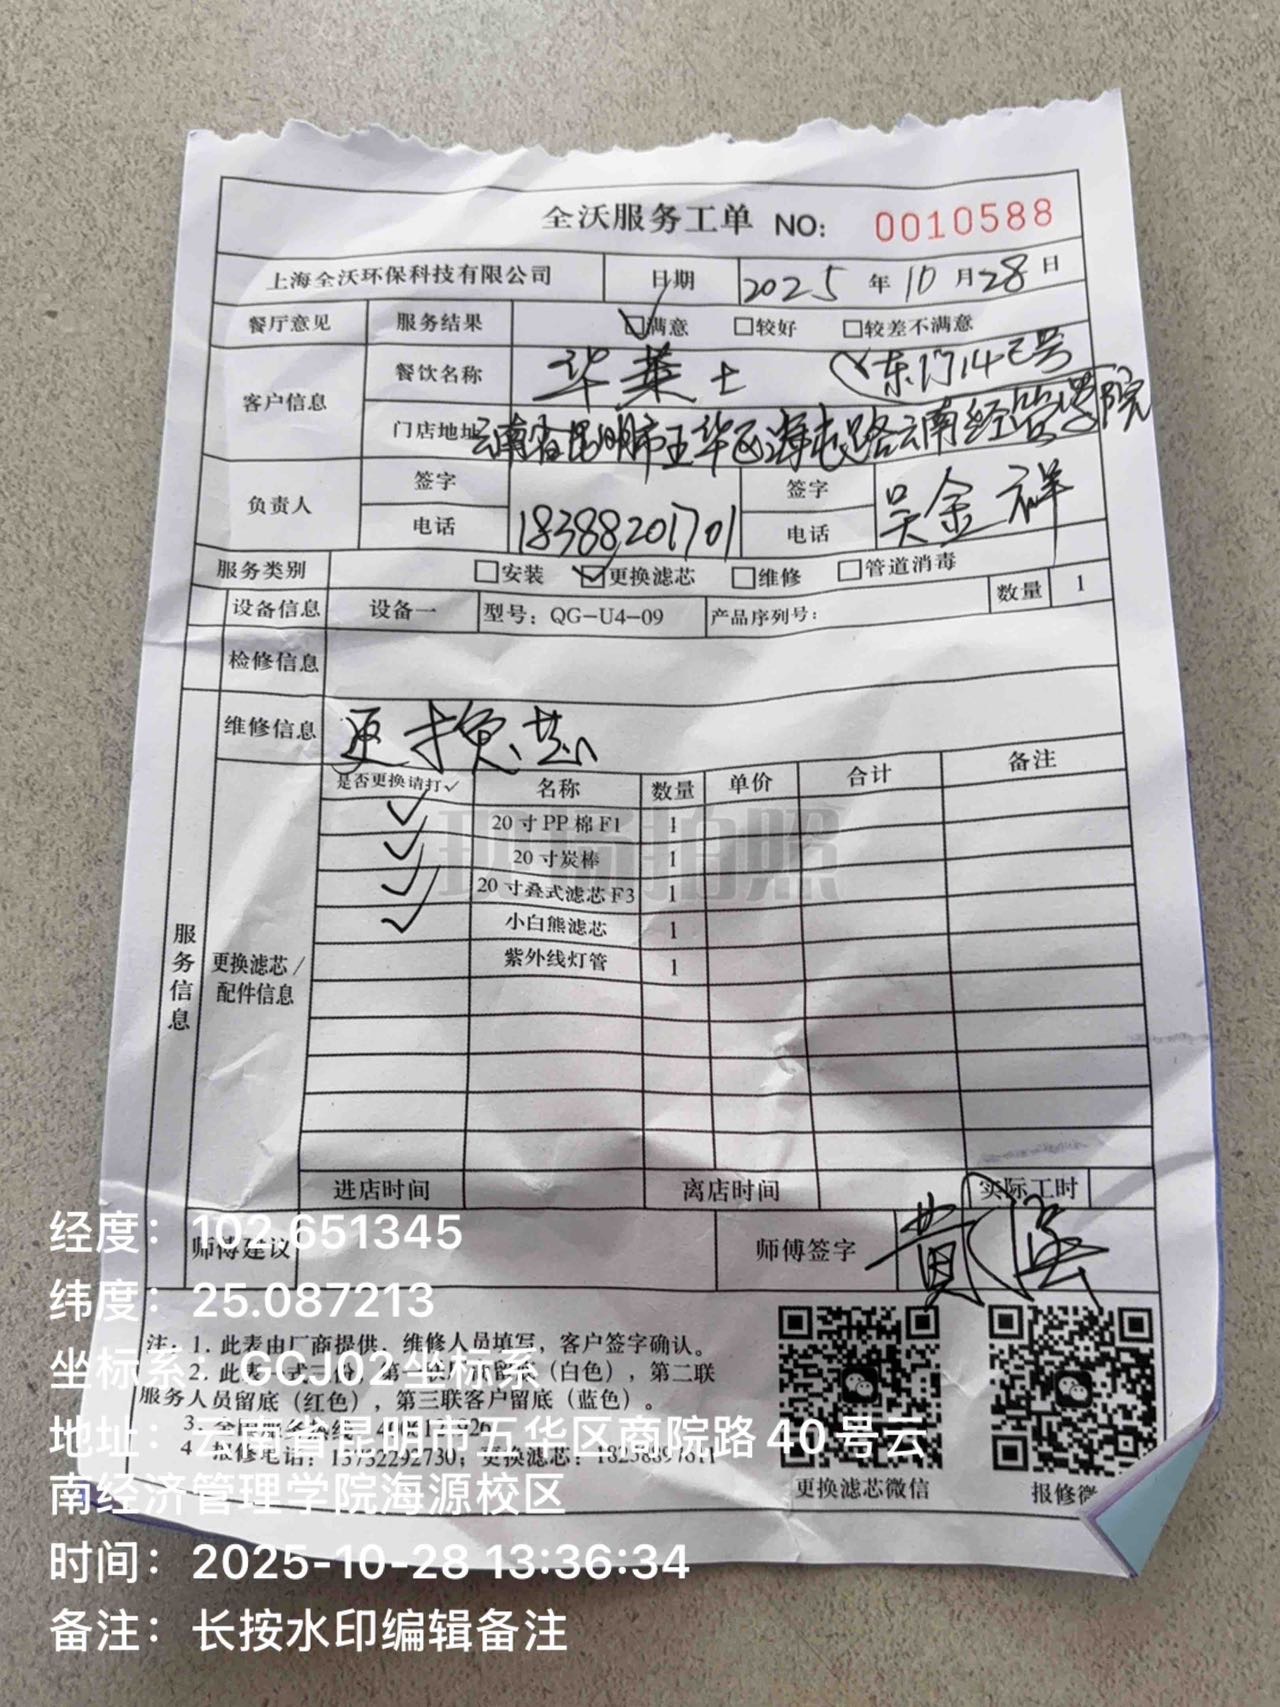 全沃服务工单 NO: 0010588
上海全沃环保科技有限公司 日期 2025年10月28日
餐厅意见 服务结果 ☑满意 □较好 □较差不满意
客户信息 餐饮名称 华莱士
门店地址 云南省昆明市五华区海屯路云南经管学院
负责人 签字 签字 吴金祥
电话 18388201701 电话
服务类别 □安装 ☑更换滤芯 □维修 □管道消毒
设备信息 设备一 型号: QG-U4-09 产品序列号: 数量 1
检修信息
维修信息 更换滤芯
服务信息
更换滤芯/配件信息
是否更换请打✓ 名称 数量 单价 合计 备注
✓ 20寸PP棉F1 1
✓ 20寸炭棒 1
✓ 20寸叠式滤芯F3 1
✓ 小白熊滤芯 1
紫外线灯管 1
现场拍照
进店时间 离店时间 实际工时
师傅建议 师傅签字
注: 1. 此表由厂商提供, 维修人员填写, 客户签字确认。
2. 此表一式三份, 第一联厂家留底(白色), 第二联
服务人员留底(红色), 第三联客户留底(蓝色)。
3. 全国服务热线:
4. 报修电话: 13732292730; 更换滤芯:
更换滤芯微信 报修微
经度: 102.651345
纬度: 25.087213
坐标系: GCJ02坐标系
地址: 云南省昆明市五华区商院路40号云
南经济管理学院海源校区
时间: 2025-10-28 13:36:34
备注: 长按水印编辑备注